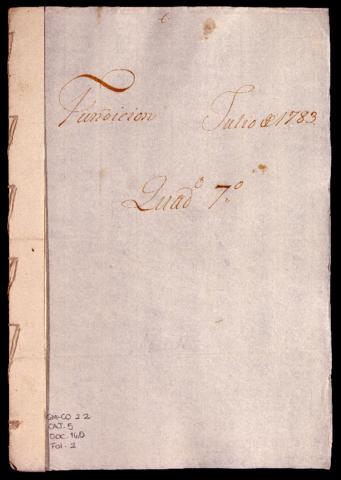 Fundicion Julio de 1783.
Quad.º 7.º
GM-CO 2.2
CAJ. 5
DOC. 16D
Fol. 2